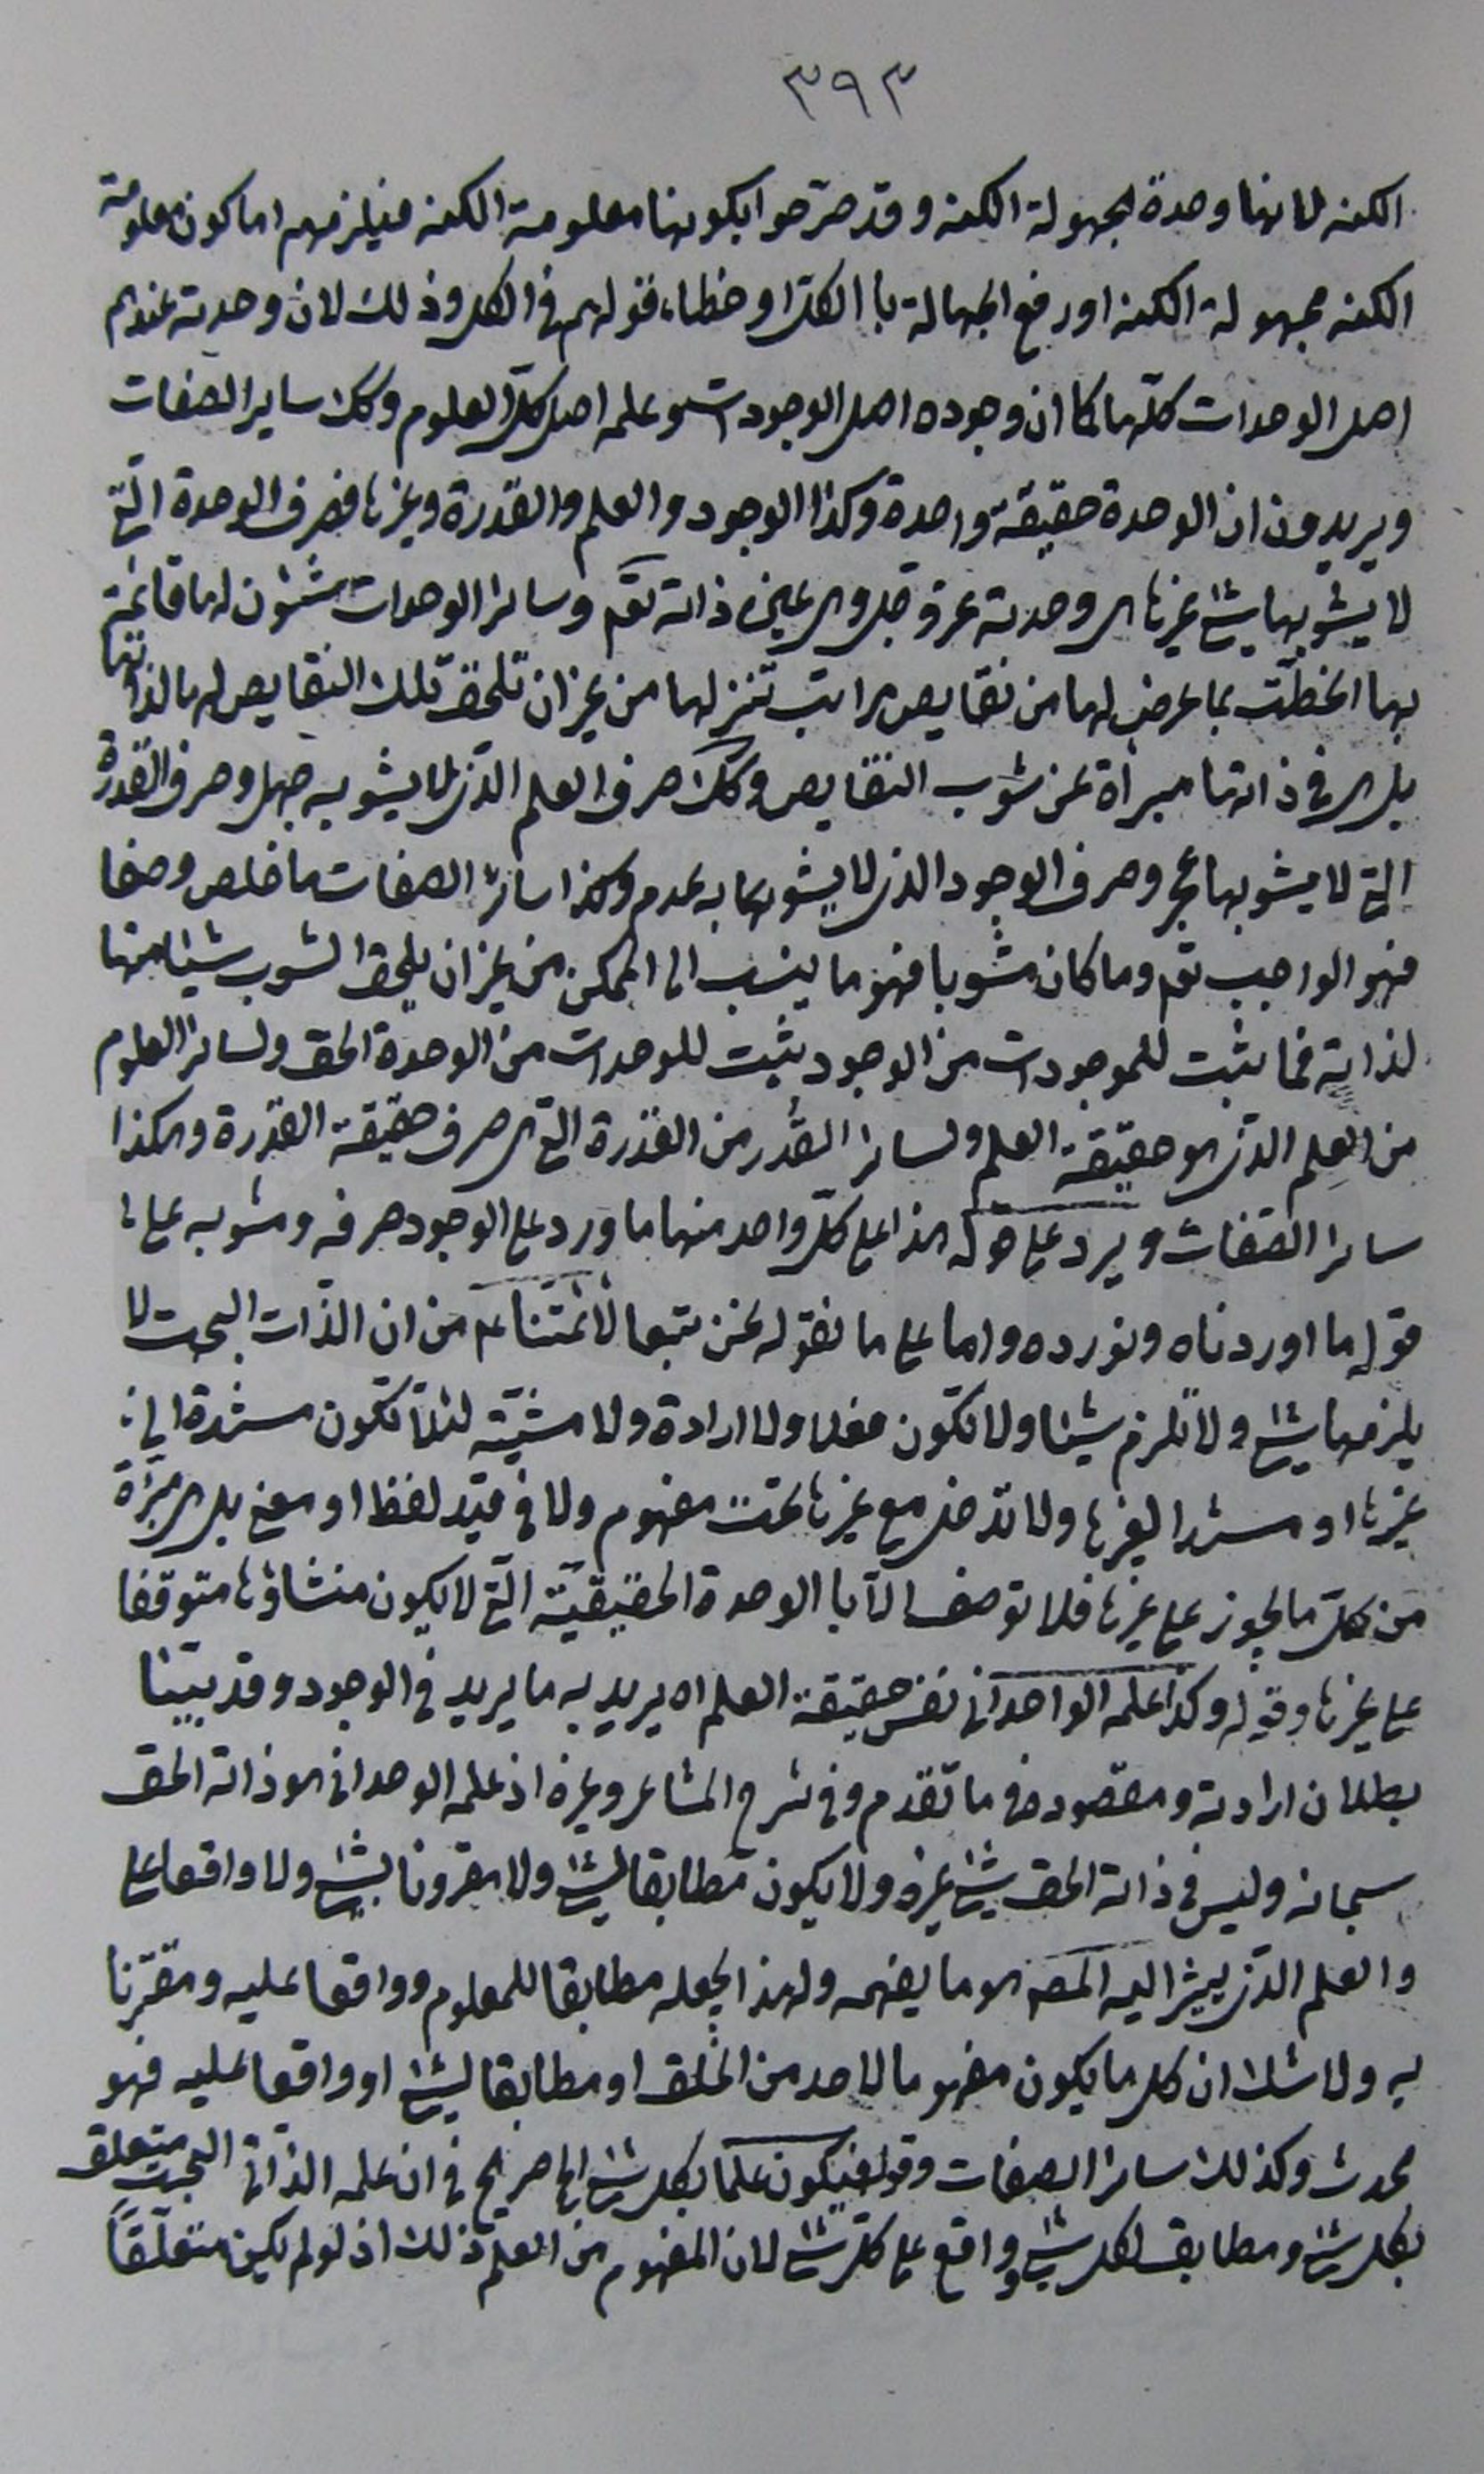 ٣٩٣
الكنه لانها وحدة مجهولة الكنه وقد صرّحوا بكونها معلومة الكنه فيلزمهم اما كون معلومة
الكنه مجهولة الكنه او رفع الجهالة باالكلّ او خطاء قولهم فى الكل وذلك لان وحدته عندهم
اصل الوحدات كلّها كما ان وجوده اصل الوجودات وعلمه اصل كلّ العلوم وكك ساير الصفات
ويريدون ان الوحدة حقيقة واحدة وكذا الوجود والعلم والقدرة وغيرها فصرف الوحدة الّتى
لا يشوبها شئ غيرها هى وحدته عزّ وجل وهى عين ذاته تعم وسائر الوحدات شئون لها قائمة
بها انحطّت بما عرض لها من نقايص مراتب تنزلها من غير ان تلحق تلك النقايص لها لذاتها
بل هى فى ذاتها مبرأة عن شوب النقايص وكك صرف العلم الذى لا يشوبه جهل وصرف القدرة
التى لا يشوبها عجز وصرف الوجود الذى لا يشوبه عدم وكذا سائر الصفات ما خلص وصفا
فهو الواجب تعم وما كان مشوبا فهو ما ينسب الى الممكن من غير ان يلحق الشوب شيئا منها
لذاته فما يثبت للموجودات من الوجود يثبت للوحدات من الوحدة الحق ولسائر العلوم
من العلم الذى هو حقيقة العلم ولسائر القُدَر من القدرة التى هى صرف حقيقة القدرة وهكذا
سائر الصّفات ويرد على قوله هذا على كلّ واحد منها ما ورد على الوجود صرفه ومشوبه على
قوله ما اوردناه ونورده واما على ما نقوله نحن تبعا لائمّتنا عم من ان الذّات البحت لا
يلزمها شئ ولا تلزم شيئا ولا تكون فعلا ولا ارادة ولا مشيّته لئلّا تكون مستندة الى
غيرها او مستندا اليغيرها ولا تدخل مع غيرها تحت مفهوم ولا فى قيد لفظ او معنى بل هى مبرّأة
من كلّ ما يجوز على غيرها فلا توصف الّا باالوحدة الحقيقيّة الّتى لا يكون منشاؤها متوقفا
على غيرها وقوله وكذا علمه الواحدانى نفس حقيقة العلم اه يريد به ما يريد فى الوجود وقد بيّنا
بطلان ارادته ومقصوده فى ما تقدم وفى شرح المشاعر وغيره اذ علمه الوحدانى هو ذاته الحق
سبحانه وليس فى ذاته الحق شئ غيره ولا يكون مطابقا لشئ ولا مقرونا بشئ ولا واقعا على
والعلم الذى يشير اليه المصه هو ما يفهمه ولهذا يجعله مطابقا للمعلوم وواقعا عليه ومقترنا
به ولا شك ان كل ما يكون مفهوما لاحد من الخلق او مطابقا لشئ او واقعا عليه فهو
محدث وكذلك سائر الصفات وقوله فيكون علما بكل شئ الخ صريح فى ان علمه الذّاتى البحت متعلق
بكل شئ ومطابق لكل شئ وواقع على كلّ شئ لان المفهوم من العلم ذلك اذ لو لم يكن متعلّقاً